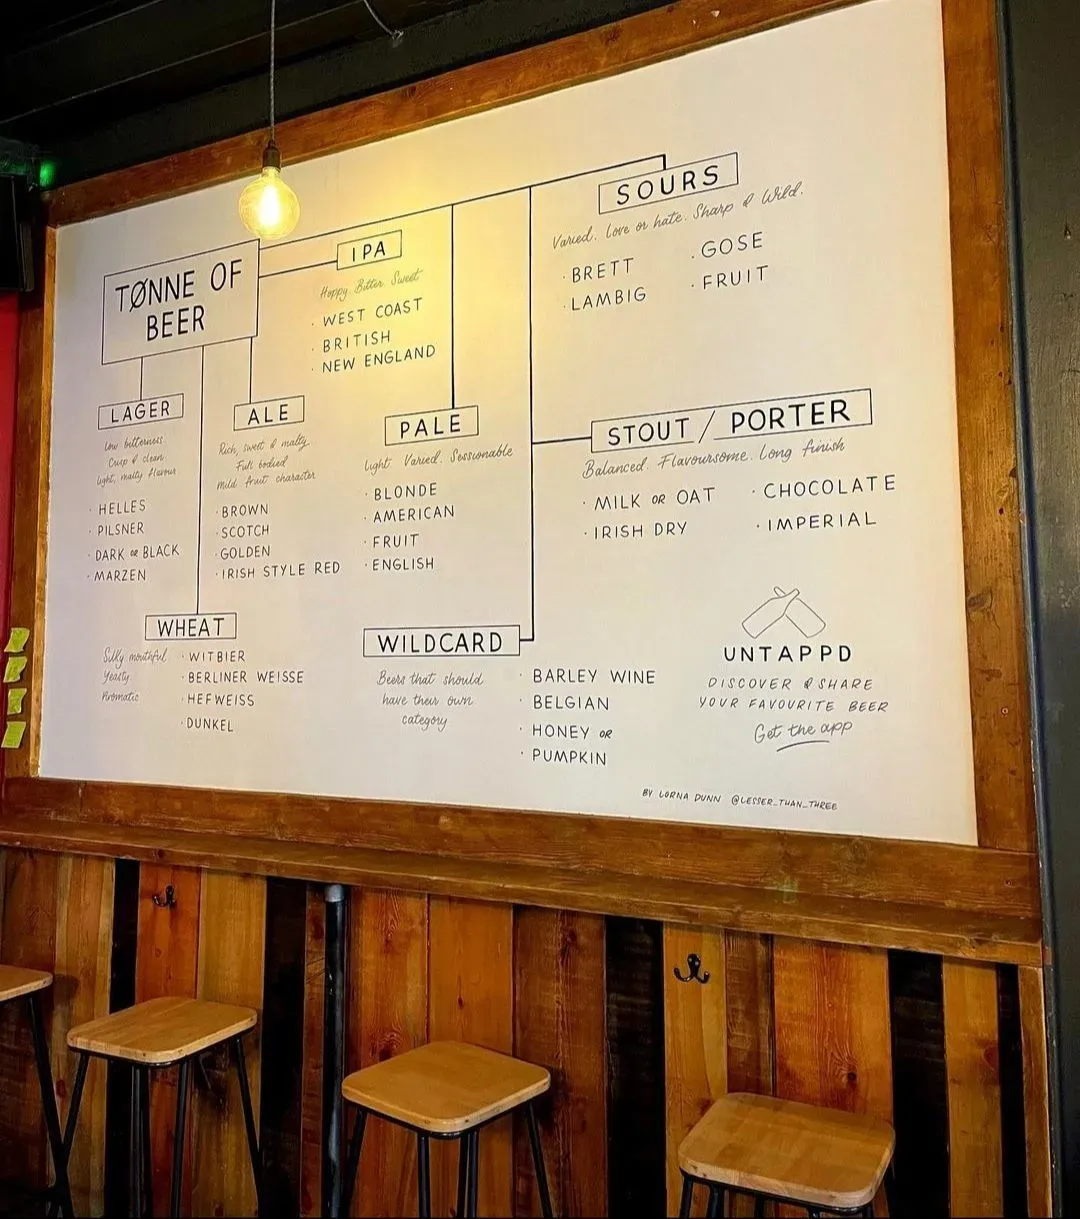 TØNNE OF
BEER
IPA
Hoppy. Bitter. Sweet
· WEST COAST
· BRITISH
· NEW ENGLAND
SOURS
Varied. Love or hate. Sharp & Wild.
· BRETT
· LAMBIG
· GOSE
· FRUIT
LAGER
Low bitterness.
Crisp & clean.
light, malty flavour
· HELLES
· PILSNER
· DARK OR BLACK
· MARZEN
ALE
Rich, sweet & malty
Full bodied
mild fruit character
· BROWN
· SCOTCH
· GOLDEN
· IRISH STYLE RED
PALE
Light. Varied. Sessionable
· BLONDE
· AMERICAN
· FRUIT
· ENGLISH
STOUT / PORTER
Balanced. Flavoursome. Long finish
· MILK OR OAT
· IRISH DRY
· CHOCOLATE
· IMPERIAL
WHEAT
Silky mouthful
Yeasty
Aromatic
· WITBIER
· BERLINER WEISSE
· HEFWEISS
· DUNKEL
WILDCARD
Beers that should
have their own
category
· BARLEY WINE
· BELGIAN
· HONEY OR
· PUMPKIN
UNTAPPD
DISCOVER & SHARE
YOUR FAVOURITE BEER
Get the app
BY LORNA DUNN @LESSER_THAN_THREE